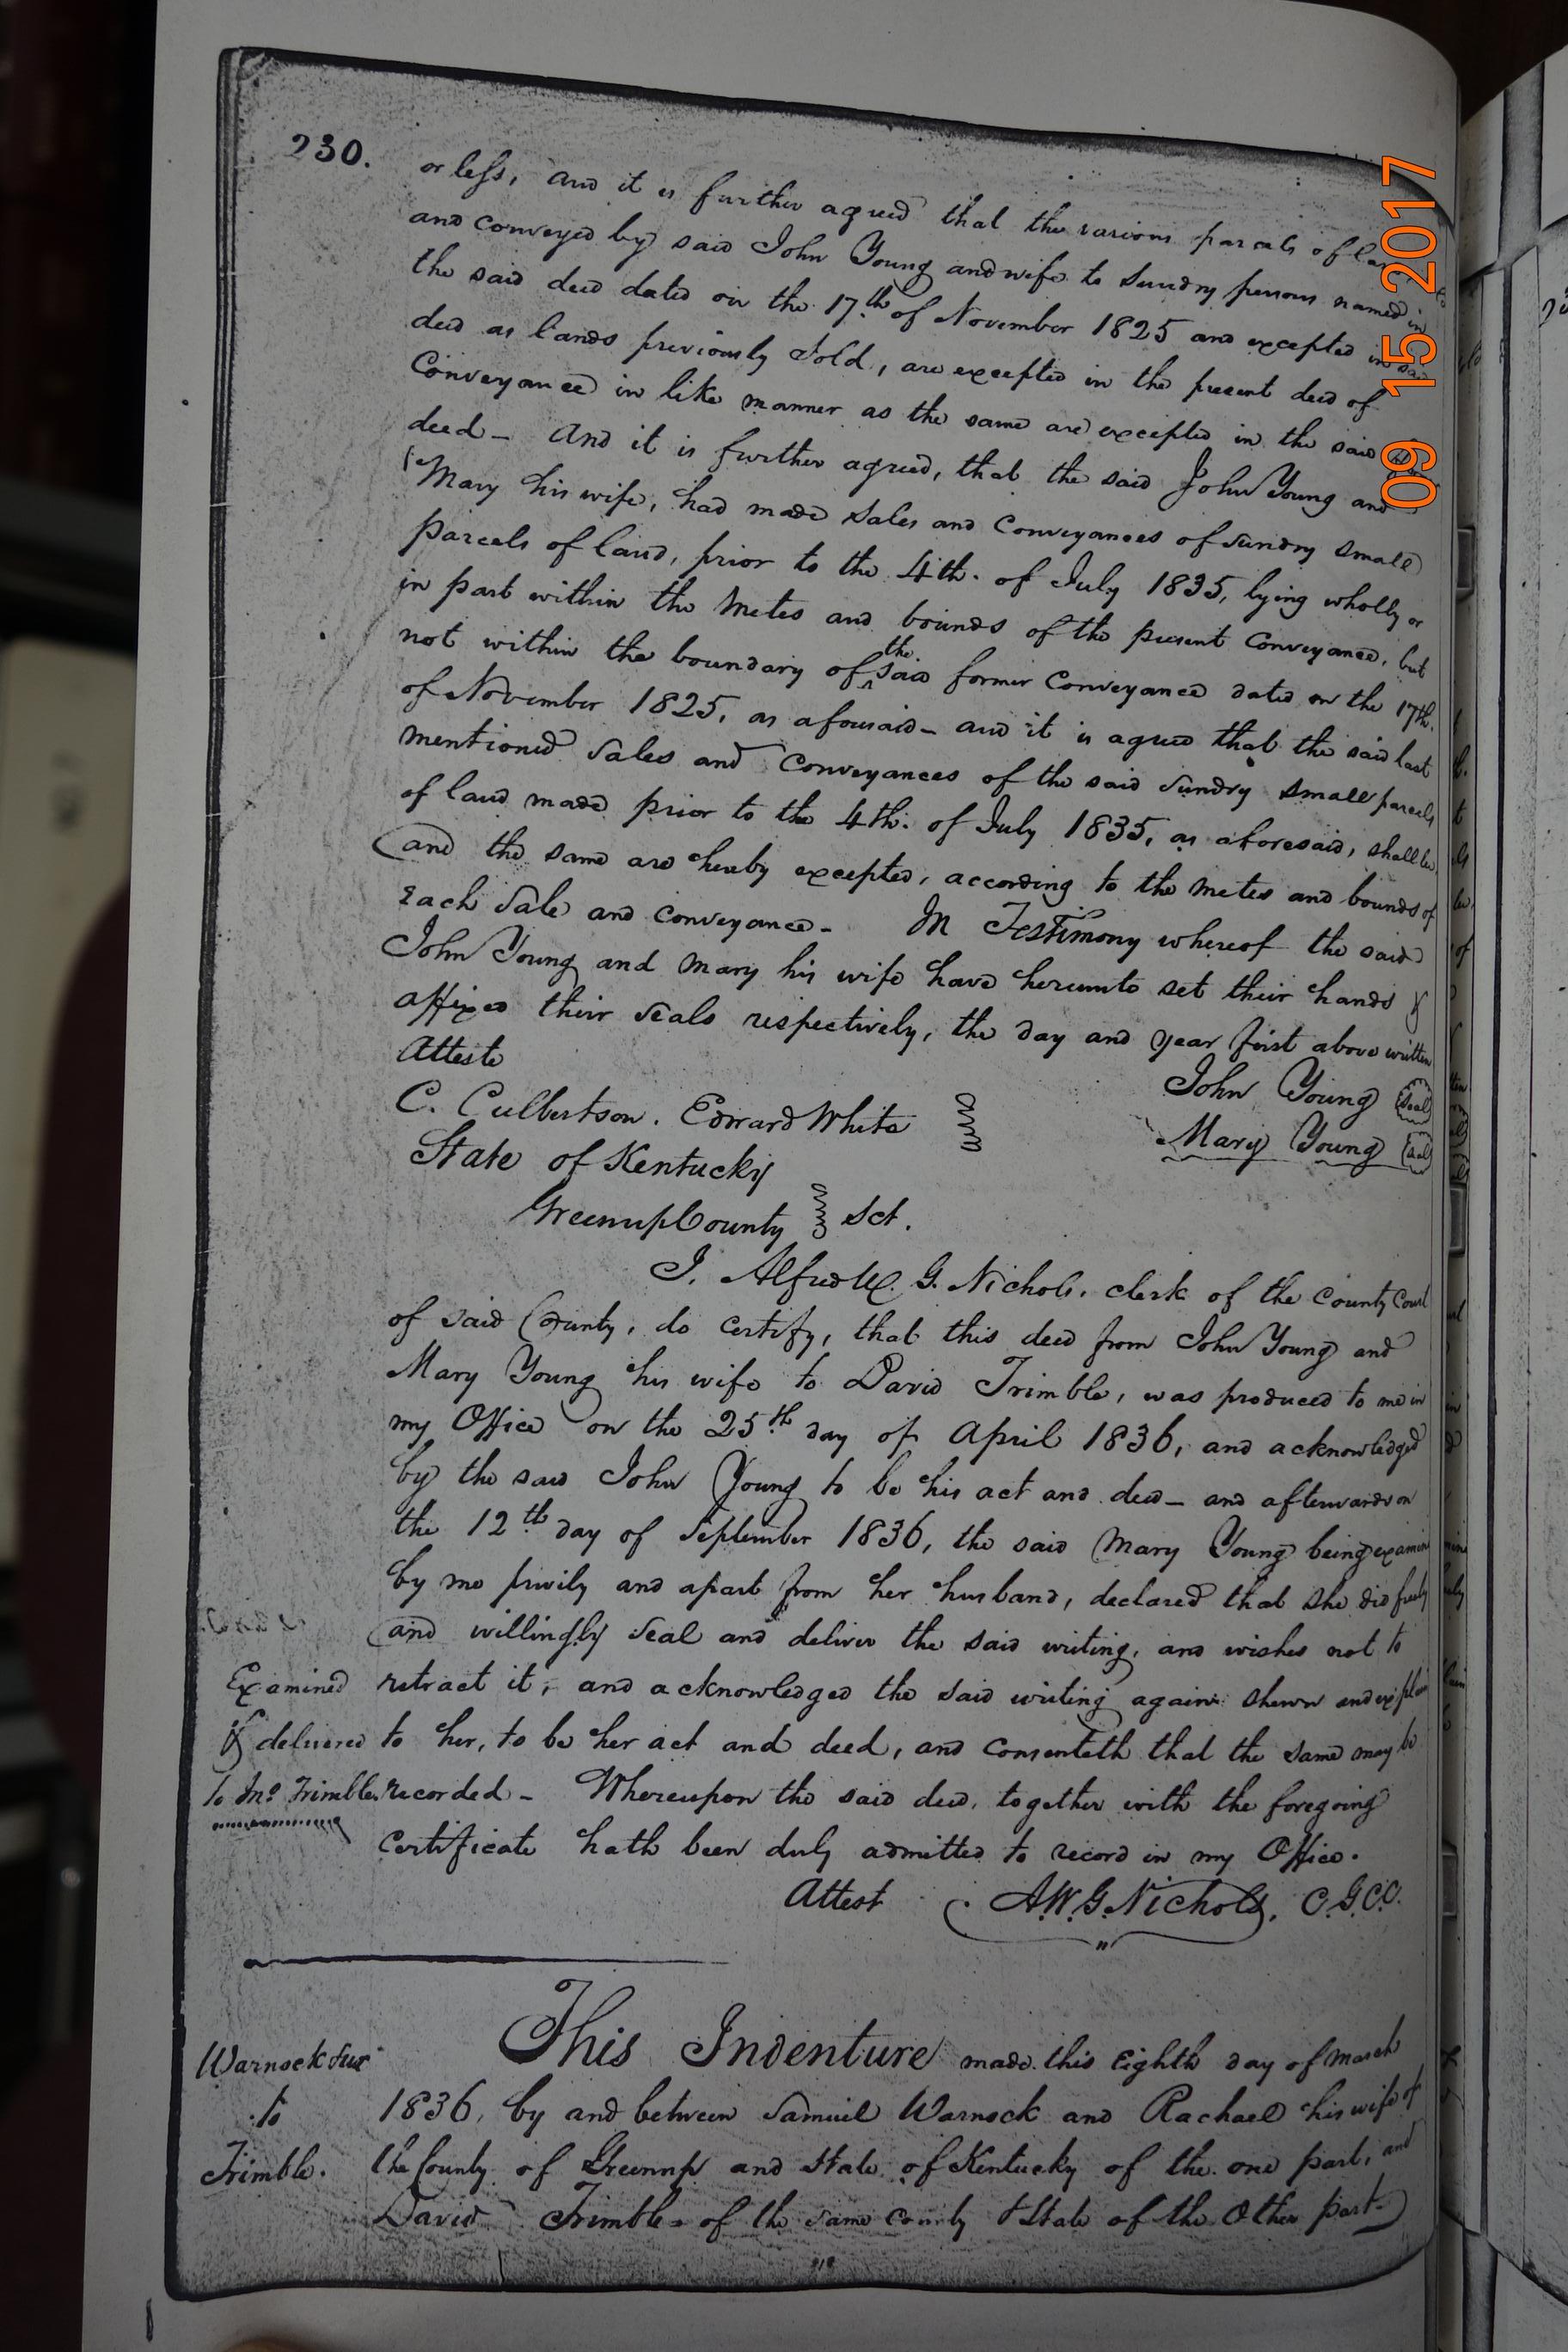 230.
or less, and it is further agreed that the various parcels of
and conveyed by said John Young and wife to sundry persons named in
the said deed dated on the 17th of November 1825 and excepted in said
deed as lands previously sold, are excepted in the present deed of
Conveyance in like manner as the same are excepted in the said
deed - And it is further agreed, that the said John Young and
Mary his wife, had made sales and conveyances of sundry small
parcels of land, prior to the 4th. of July 1835, lying wholly or
in part within the metes and bounds of the present Conveyance, but
not within the boundary of the said former conveyance dated on the 17th.
of November 1825, as aforesaid - and it is agreed that the said last
mentioned sales and conveyances of the said sundry small parcels
of land made prior to the 4th. of July 1835, as aforesaid, shall be
and the same are hereby excepted, according to the metes and bounds of
Each sale and conveyance - In Testimony whereof the said
John Young and Mary his wife have hereunto set their hands &
affixed their seals respectively, the day and year first above written
Atteste
John Young seal
C. Culbertson. Edward White
Mary Young seal
State of Kentucky
Greenup County Sct.
I. Alfred W. G. Nichols, clerk of the County Court
of said County, do certify, that this deed from John Young and
Mary Young his wife to David Trimble, was produced to me in
my Office on the 25th day of April 1836, and acknowledged
by the said John Young to be his act and deed - and afterwards on
the 12th day of September 1836, the said Mary Young being examin
by me privily and apart from her husband, declared that she did freely
and willingly seal and deliver the said writing, and wishes not to
Examined retract it, and acknowledged the said writing again shewn and explain
& delivered to her, to be her act and deed, and consenteth that the same may be
to Jno Trimble. recorded - Whereupon the said deed, together with the foregoing
certificate hath been duly admitted to record in my Office.
Attest A.W.G. Nichols, C.G.C.C.
This Indenture made this Eighth day of March
Warnock & ux
to 1836, by and between Samuel Warnock and Rachael his wife of
Trimble. the County of Greenup and State of Kentucky of the one part, and
David Trimble of the same county & State of the Other part
09 15 2017